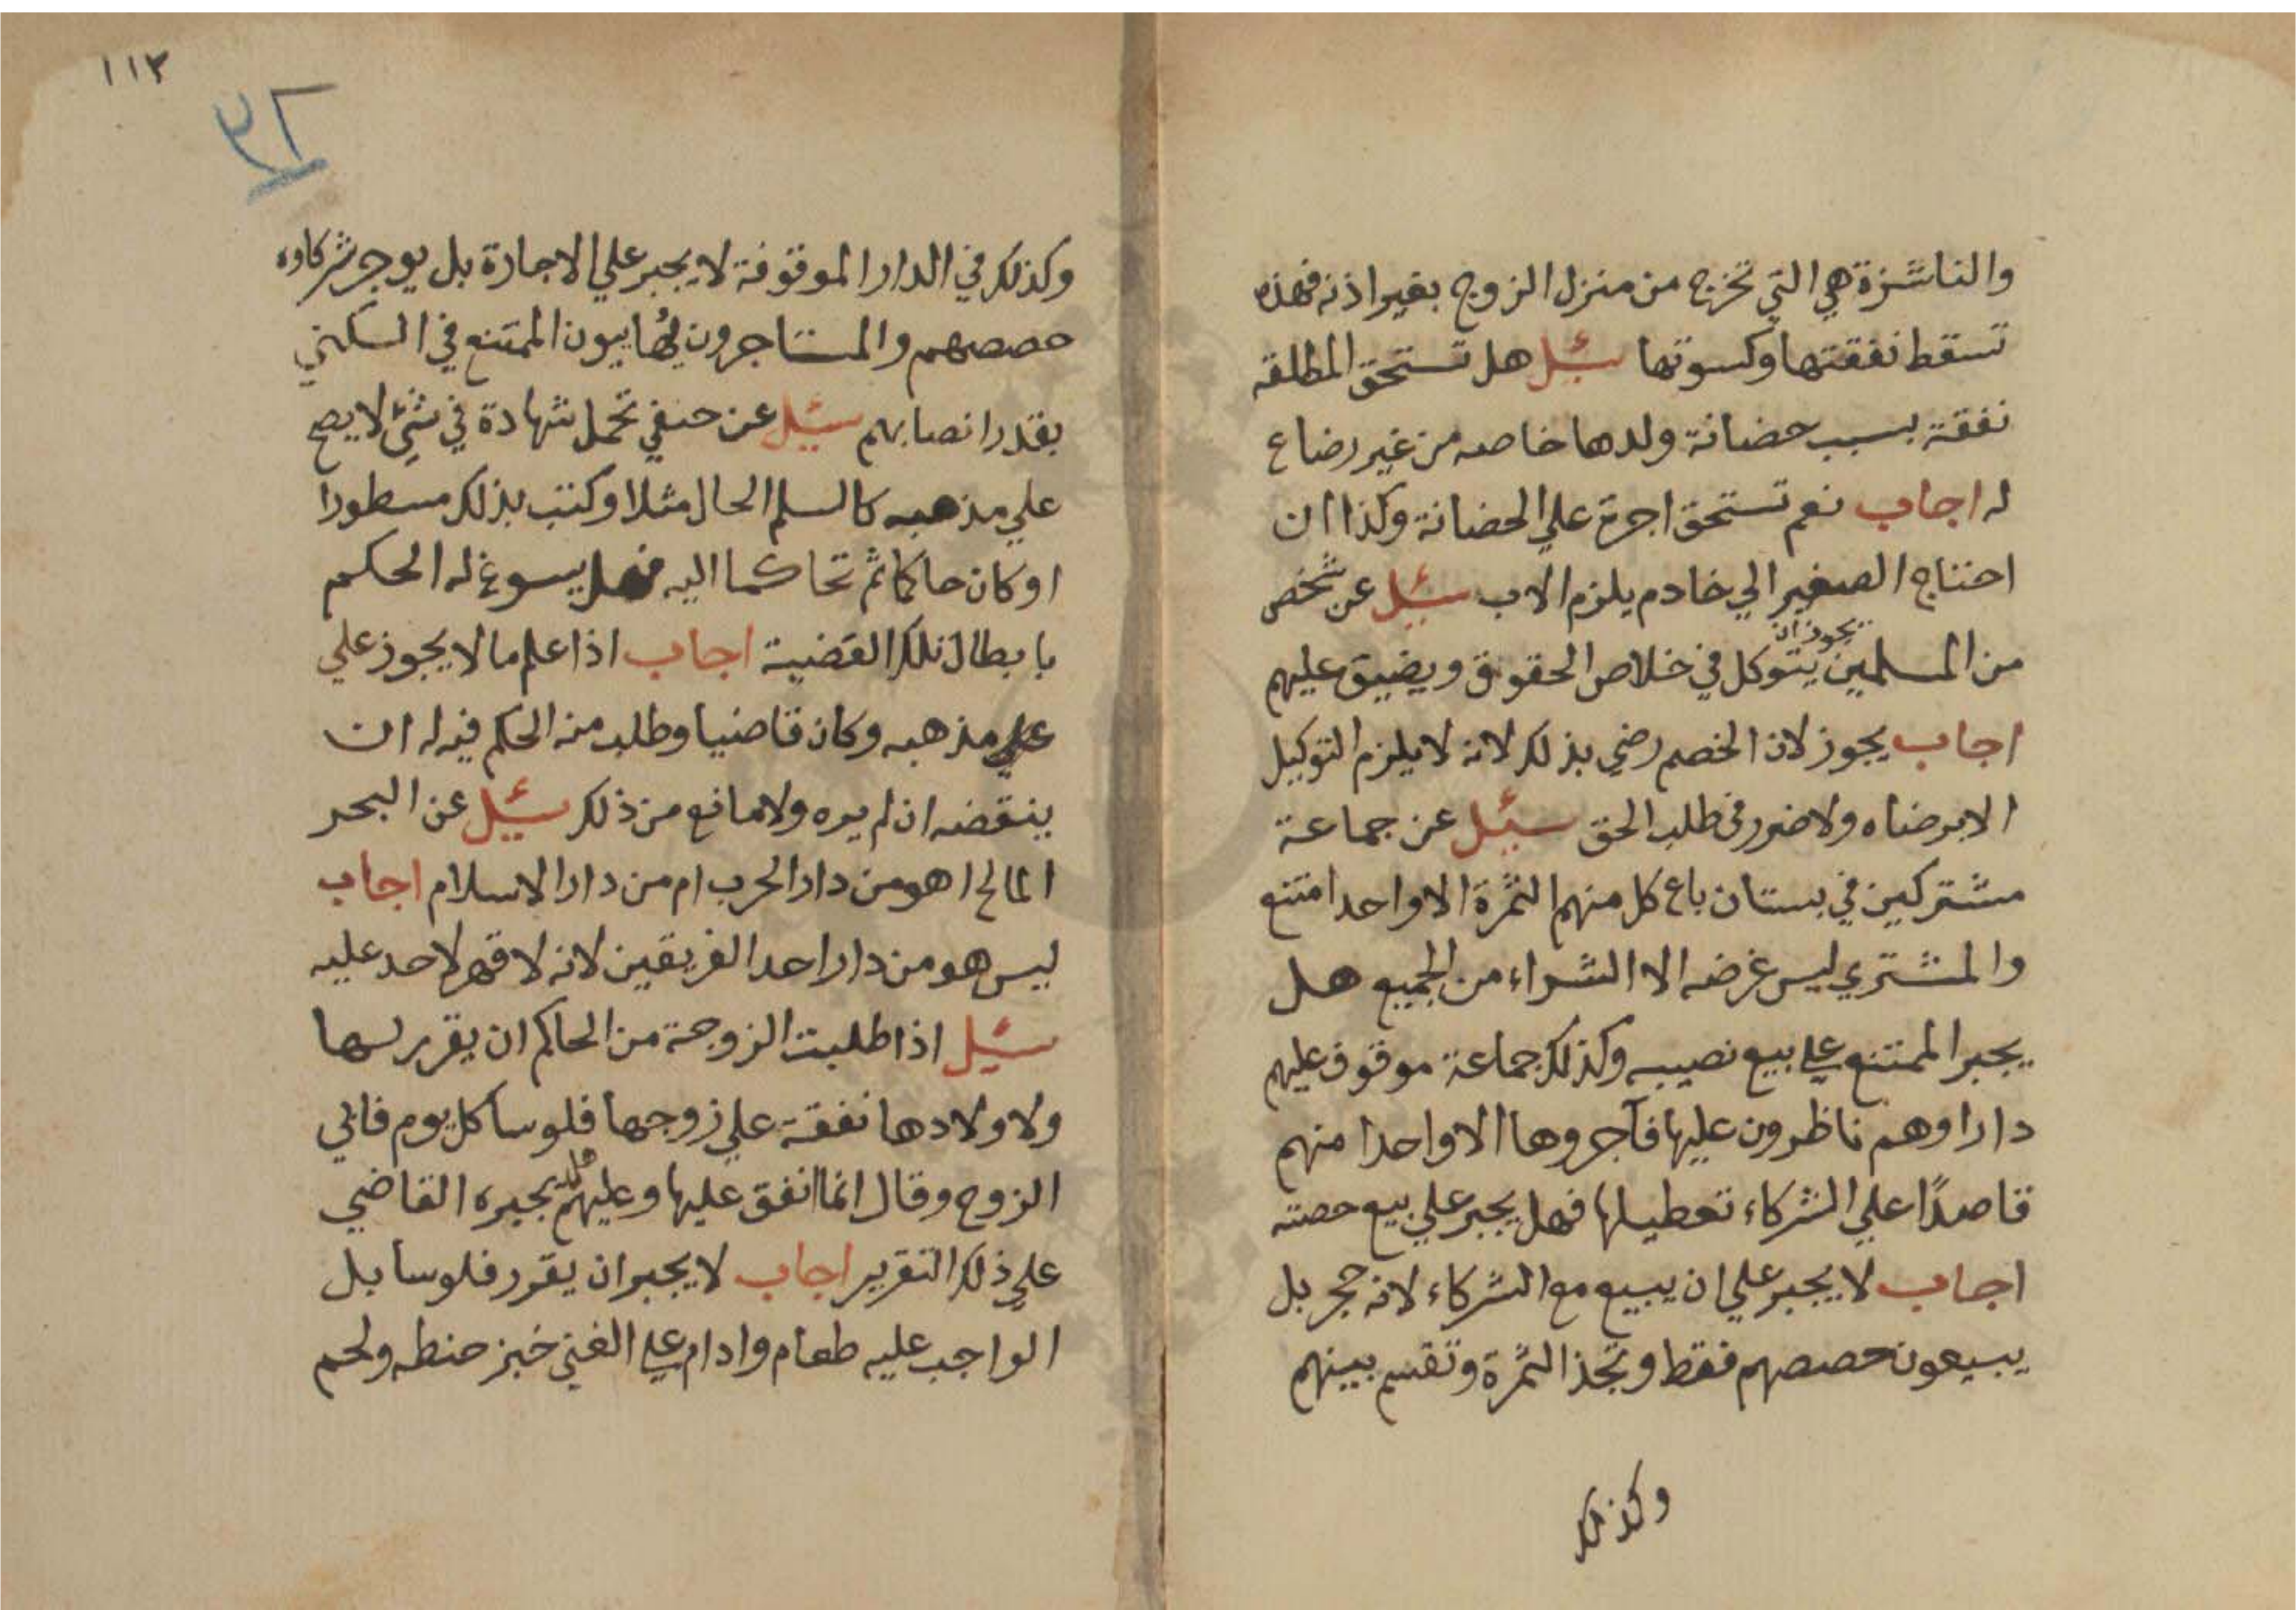 والناشزة هي التي تخرج من منزل الزوج بغير اذنه فهذه
تسقط نفقتها وكسوتها سئل هل تستحق المطلقه
نفقة بسبب حضانة ولدها خاصه من غير رضاع
له اجاب نعم تستحق اجرة علي الحضانة وكذا ان
احتاج الصغير الي خادم يلزم الاب سئل عن شخص
من المسلمين يجوز ان يتوكل في خلاص الحقوق ويضيق عليهم
اجاب يجوز لان الخصم رضي بذلك لانه لا يلزم التوكيل
الا برضاه ولا ضرر في طلب الحق سئل عن جماعة
مشتركين في بستان باع كل منهم الثمرة الا واحدا امتنع
والمشتري ليس غرضه الا الشراء من الجميع هل
يجبر الممتنع علي بيع نصيبه وكذلك جماعة موقوف عليهم
دارا وهم ناظرون عليها فآجروها الا واحدا منهم
قاصدًا علي الشركاء تعطيلها فهل يجبر علي بيع حصته
اجاب لا يجبر علي ان يبيع مع الشركاء لانه حجر بل
يبيعون حصصهم فقط وتجذ الثمرة وتقسم بينهم
وكذلك
١١٣
وكذلك في الدار الموقوفة لا يجبر علي الاجارة بل يوجر شركاوه
حصصهم والمستاجرون يُهاييون الممتنع في السكني
بقدر انصابهم سئل عن حنفي تحمل شهادة في شئ لا يصح
علي مذهبه كالسلم الحال مثلا وكتب بذلك مسطورا
او كان حاكما ثم تحاكما اليه فهل يسوغ له الحكم
بابطال تلك القضية اجاب اذا علم ما لا يجوز علي
علي مذهبه وكان قاضيا وطلب منه الحكم فيه له ان
ينقضه ان لم يره ولا مانع من ذلك سئل عن البحر
المالح اهو من دار الحرب ام من دار الاسلام اجاب
ليس هو من دار احد الفريقين لانه لا قهر لاحد عليه
سئل اذا طلبت الزوجة من الحاكم ان يقرر لها
ولاولادها نفقة علي زوجها فلوسا كل يوم فابي
الزوج وقال انما انفق عليها وعليهم هل يجبره القاضي
علي ذلك التقرير اجاب لا يجبر ان يقرر فلوسا بل
الواجب عليه طعام وادام علي الغني خبز حنطه ولحم